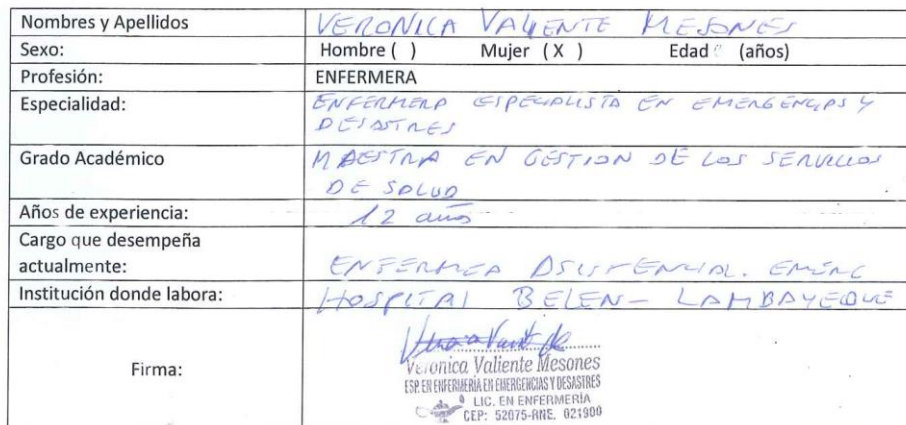 Nombres y Apellidos VERONICA VALIENTE MESONES
Sexo: Hombre ( ) Mujer ( X ) Edad (años)
Profesión: ENFERMERA
Especialidad: ENFERMERA ESPECIALISTA EN EMERGENCIAS Y
DESASTRES
Grado Académico MAESTRIA EN GESTION DE LOS SERVICIOS
DE SALUD
Años de experiencia: 12 años
Cargo que desempeña
actualmente: ENFERMERA ASISTENCIAL. EMERG
Institución donde labora: HOSPITAL BELEN - LAMBAYEQUE
Firma:
Veronica Valiente Mesones
ESP. EN ENFERMERÍA EN EMERGENCIAS Y DESASTRES
LIC. EN ENFERMERÍA
CEP: 52075-RNE. 021900